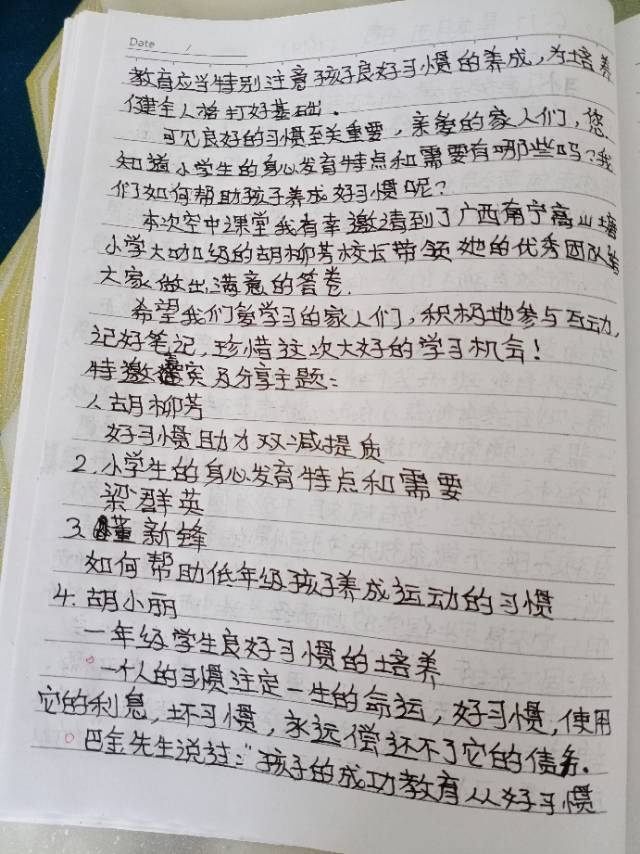 Date / 
教育应当特别注意孩子良好习惯的养成,为培养
健全人格打好基础.
可见良好的习惯至关重要,亲爱的家人们,您
知道小学生的身心发育特点和需要有哪些吗?我
们如何帮助孩子养成好习惯呢?
本次空中课堂我有幸邀请到了广西南宁高山塘
小学大功级的胡柳芳校长带领她的优秀团队给
大家做出满意的答卷.
希望我们爱学习的家人们,积极地参与互动,
记好笔记,珍惜这次大好的学习机会!
特邀嘉宾及分享主题:
1.胡柳芳
好习惯助力双减提质
2.小学生的身心发育特点和需要
梁群英
3.董新锋
如何帮助低年级孩子养成运动的习惯
4.胡小丽
一年级学生良好习惯的培养
一个人的习惯注定一生的命运,好习惯,使用
它的利息,坏习惯,永远偿还不了它的债务.
巴金先生说过:"孩子的成功教育从好习惯